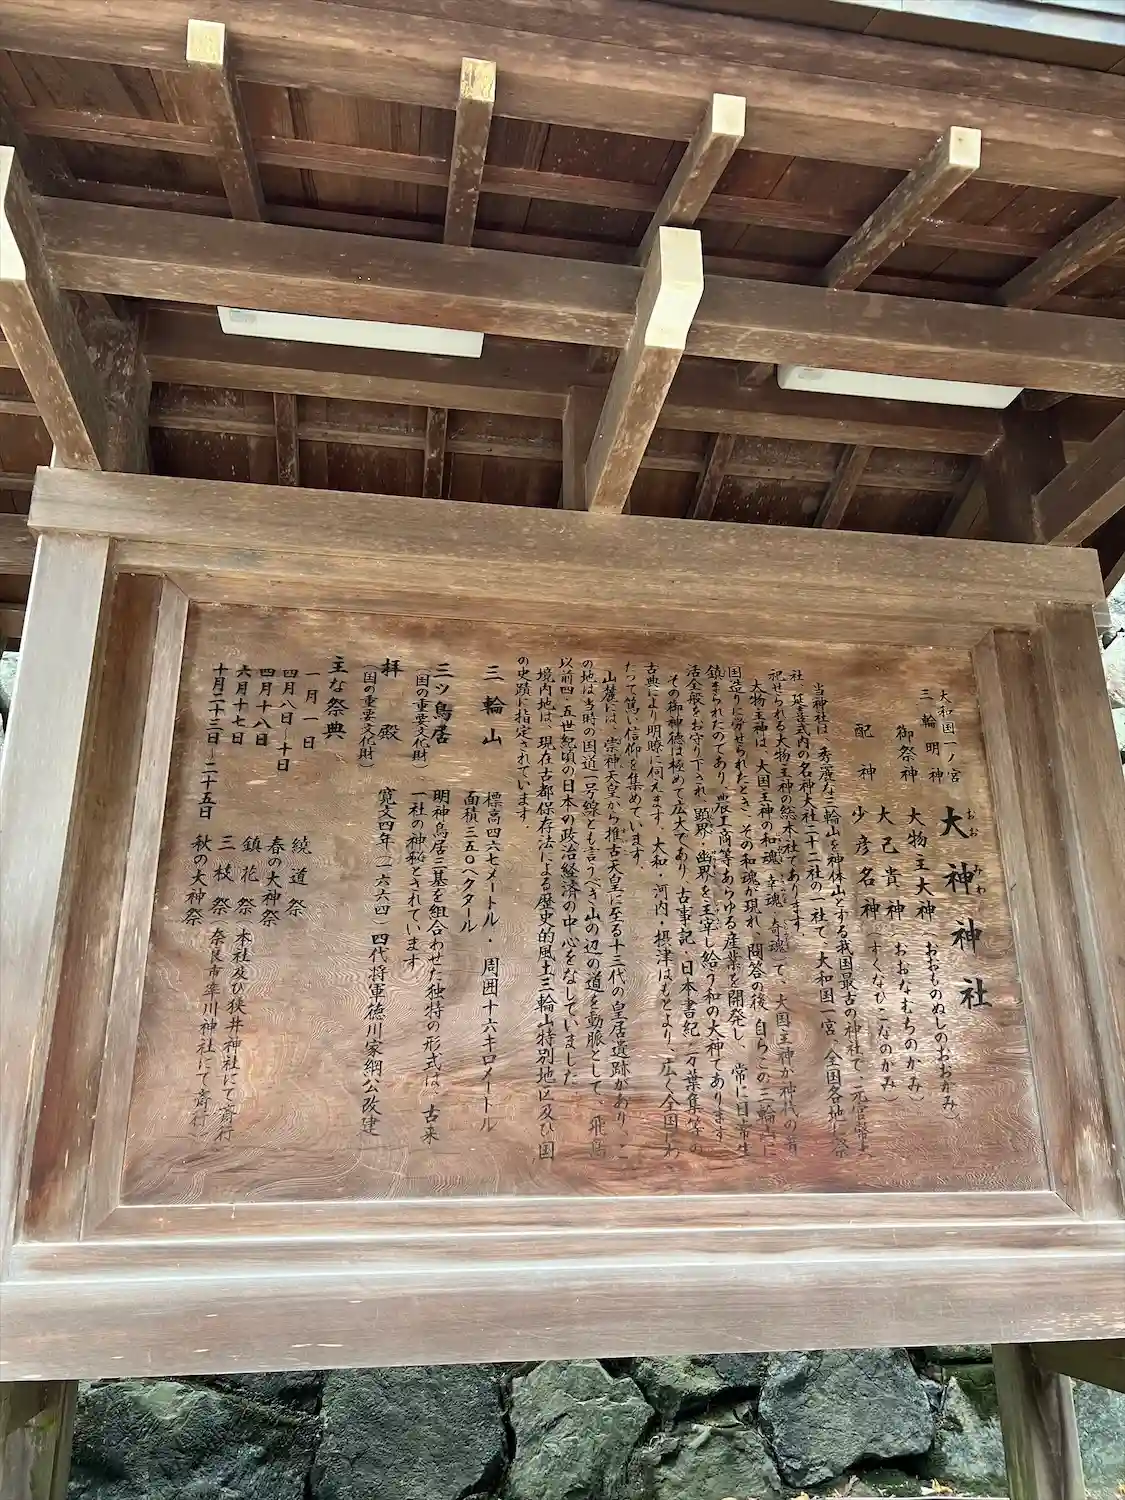 大和国一ノ宮
三輪明神
大神神社
おおみわ
御祭神 大物主大神（おおものぬしのおおかみ）
大己貴神（おおなむちのかみ）
配神 少彦名神（すくなひこなのかみ）
当神社は、秀麗な三輪山を神体山とする我国最古の神社で、元官幣大
社、延喜式内の名神大社二十二社の一社で、大和国一宮、全国各地に祭
祀せられる大物主神の総本社であります。
大物主神は、大国主神の和魂（幸魂・奇魂）で、大国主神が神代の昔
国造りに労せられたとき、その和魂が現れ、問答の後、自らこの三輪山に
鎮まられたのであり、農工商等あらゆる産業を開発し、常に日常生
活全般をお守り下され、顕界・幽界を主宰し給う和の大神であります。
その御神徳は極めて広大であり、古事記・日本書紀・万葉集等の
古典により明瞭に伺えます。大和・河内・摂津はもとより、広く全国にわ
たって篤い信仰を集めています。
山麓には、崇神天皇から推古天皇に至る十三代の皇居遺跡があり、こ
の地は当時の国道一号線とも言うべき山の辺の道を動脈として、飛鳥
以前四・五世紀頃の日本の政治経済の中心をなしていました。
境内地は、現在古都保存法による歴史的風土三輪山特別地区及び国
の史蹟に指定されています。
三輪山 標高四六七メートル・周囲十六キロメートル
面積三五〇ヘクタール
三ツ鳥居 明神鳥居三基を組合わせた独特の形式は、古来
（国の重要文化財） 一社の神秘とされています
拝殿 寛文四年（一六六四）四代将軍徳川家綱公改建
（国の重要文化財）
主な祭典
一月一日 繞道祭
四月八日―十日 春の大神祭
四月十八日 鎮花祭 本社及び狭井神社にて斎行
六月十七日 三枝祭 奈良市率川神社にて斎行
十月二十三日―二十五日 秋の大神祭